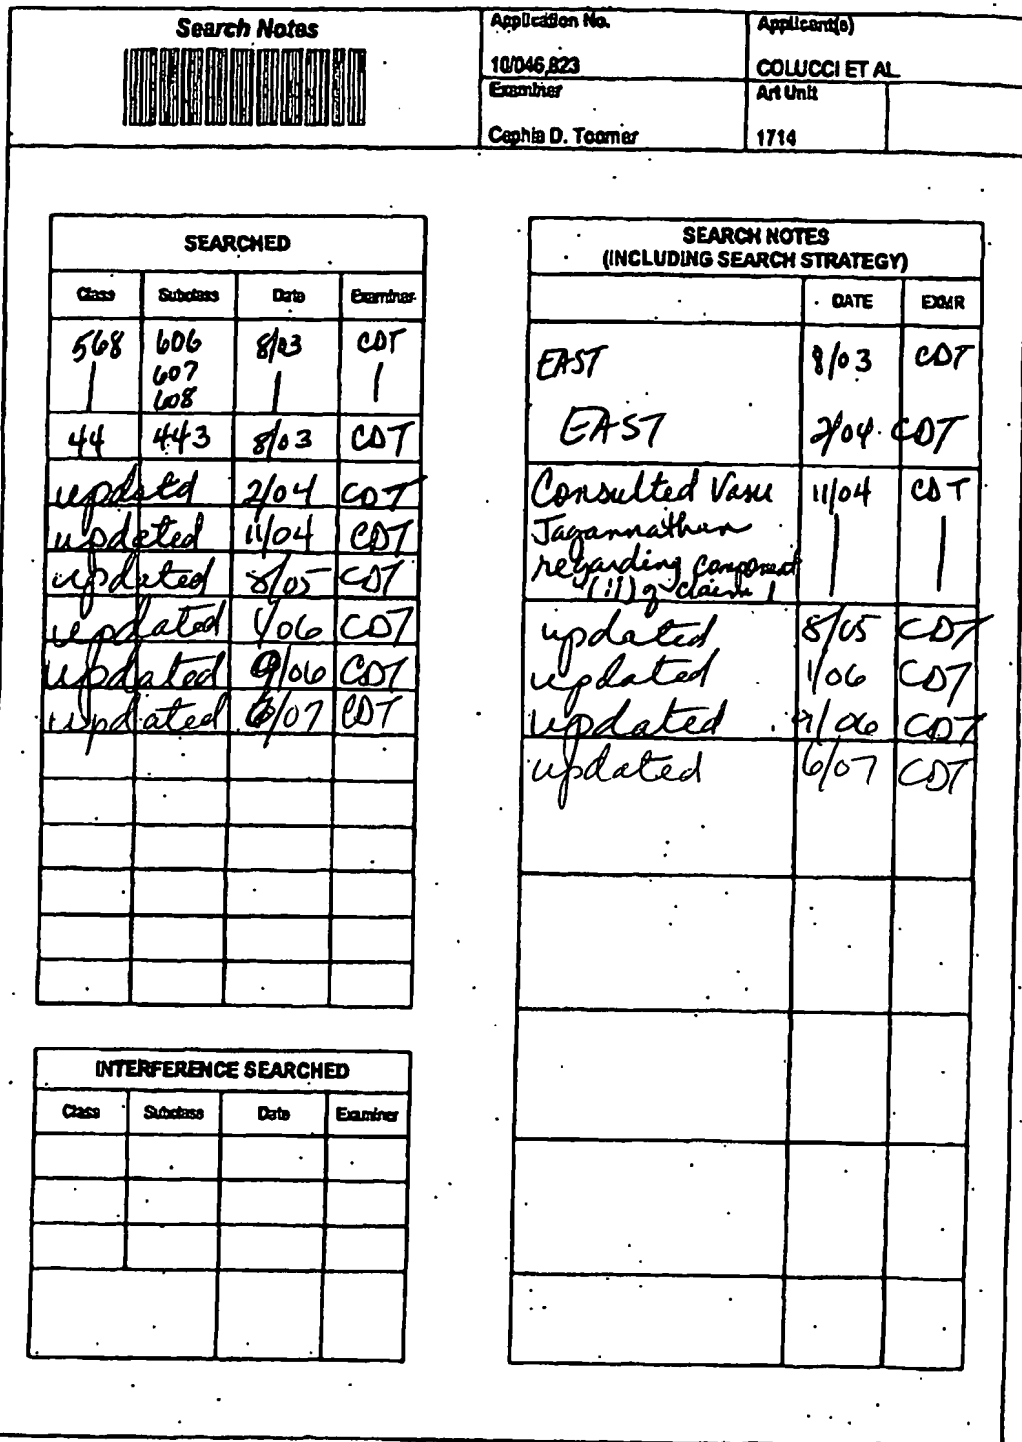 Search Notes
Application No.
10/046,823
Applicant(s)
COLUCCI ET AL.
Examiner
Cephia D. Toomer
Art Unit
1714
SEARCHED
Class Subclass Date Examiner
568 606 8/03 CDT
607
608
44 443 8/03 CDT
updatd 2/04 CDT
updated 11/04 CDT
updated 8/05 CDT
updated 1/06 CDT
updated 9/06 CDT
updated 6/07 CDT
INTERFERENCE SEARCHED
Class Subclass Date Examiner
SEARCH NOTES
(INCLUDING SEARCH STRATEGY)
DATE EXMR
EAST 8/03 CDT
EAST 2/04 CDT
Consulted Vasu 11/04 CDT
Jagannathan
regarding component
(ii) of claim 1
updated 8/05 CDT
updated 1/06 CDT
updated 9/06 CDT
updated 6/07 CDT